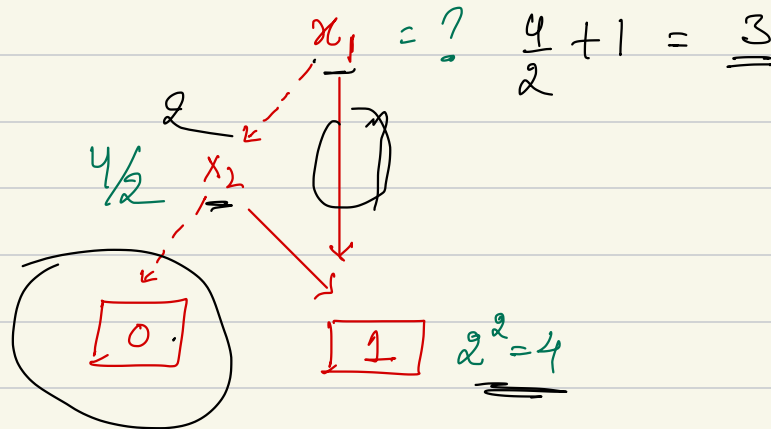 x₁ = ? 4/2 + 1 = 3
2
4/2 x₂
0 1 2² = 4